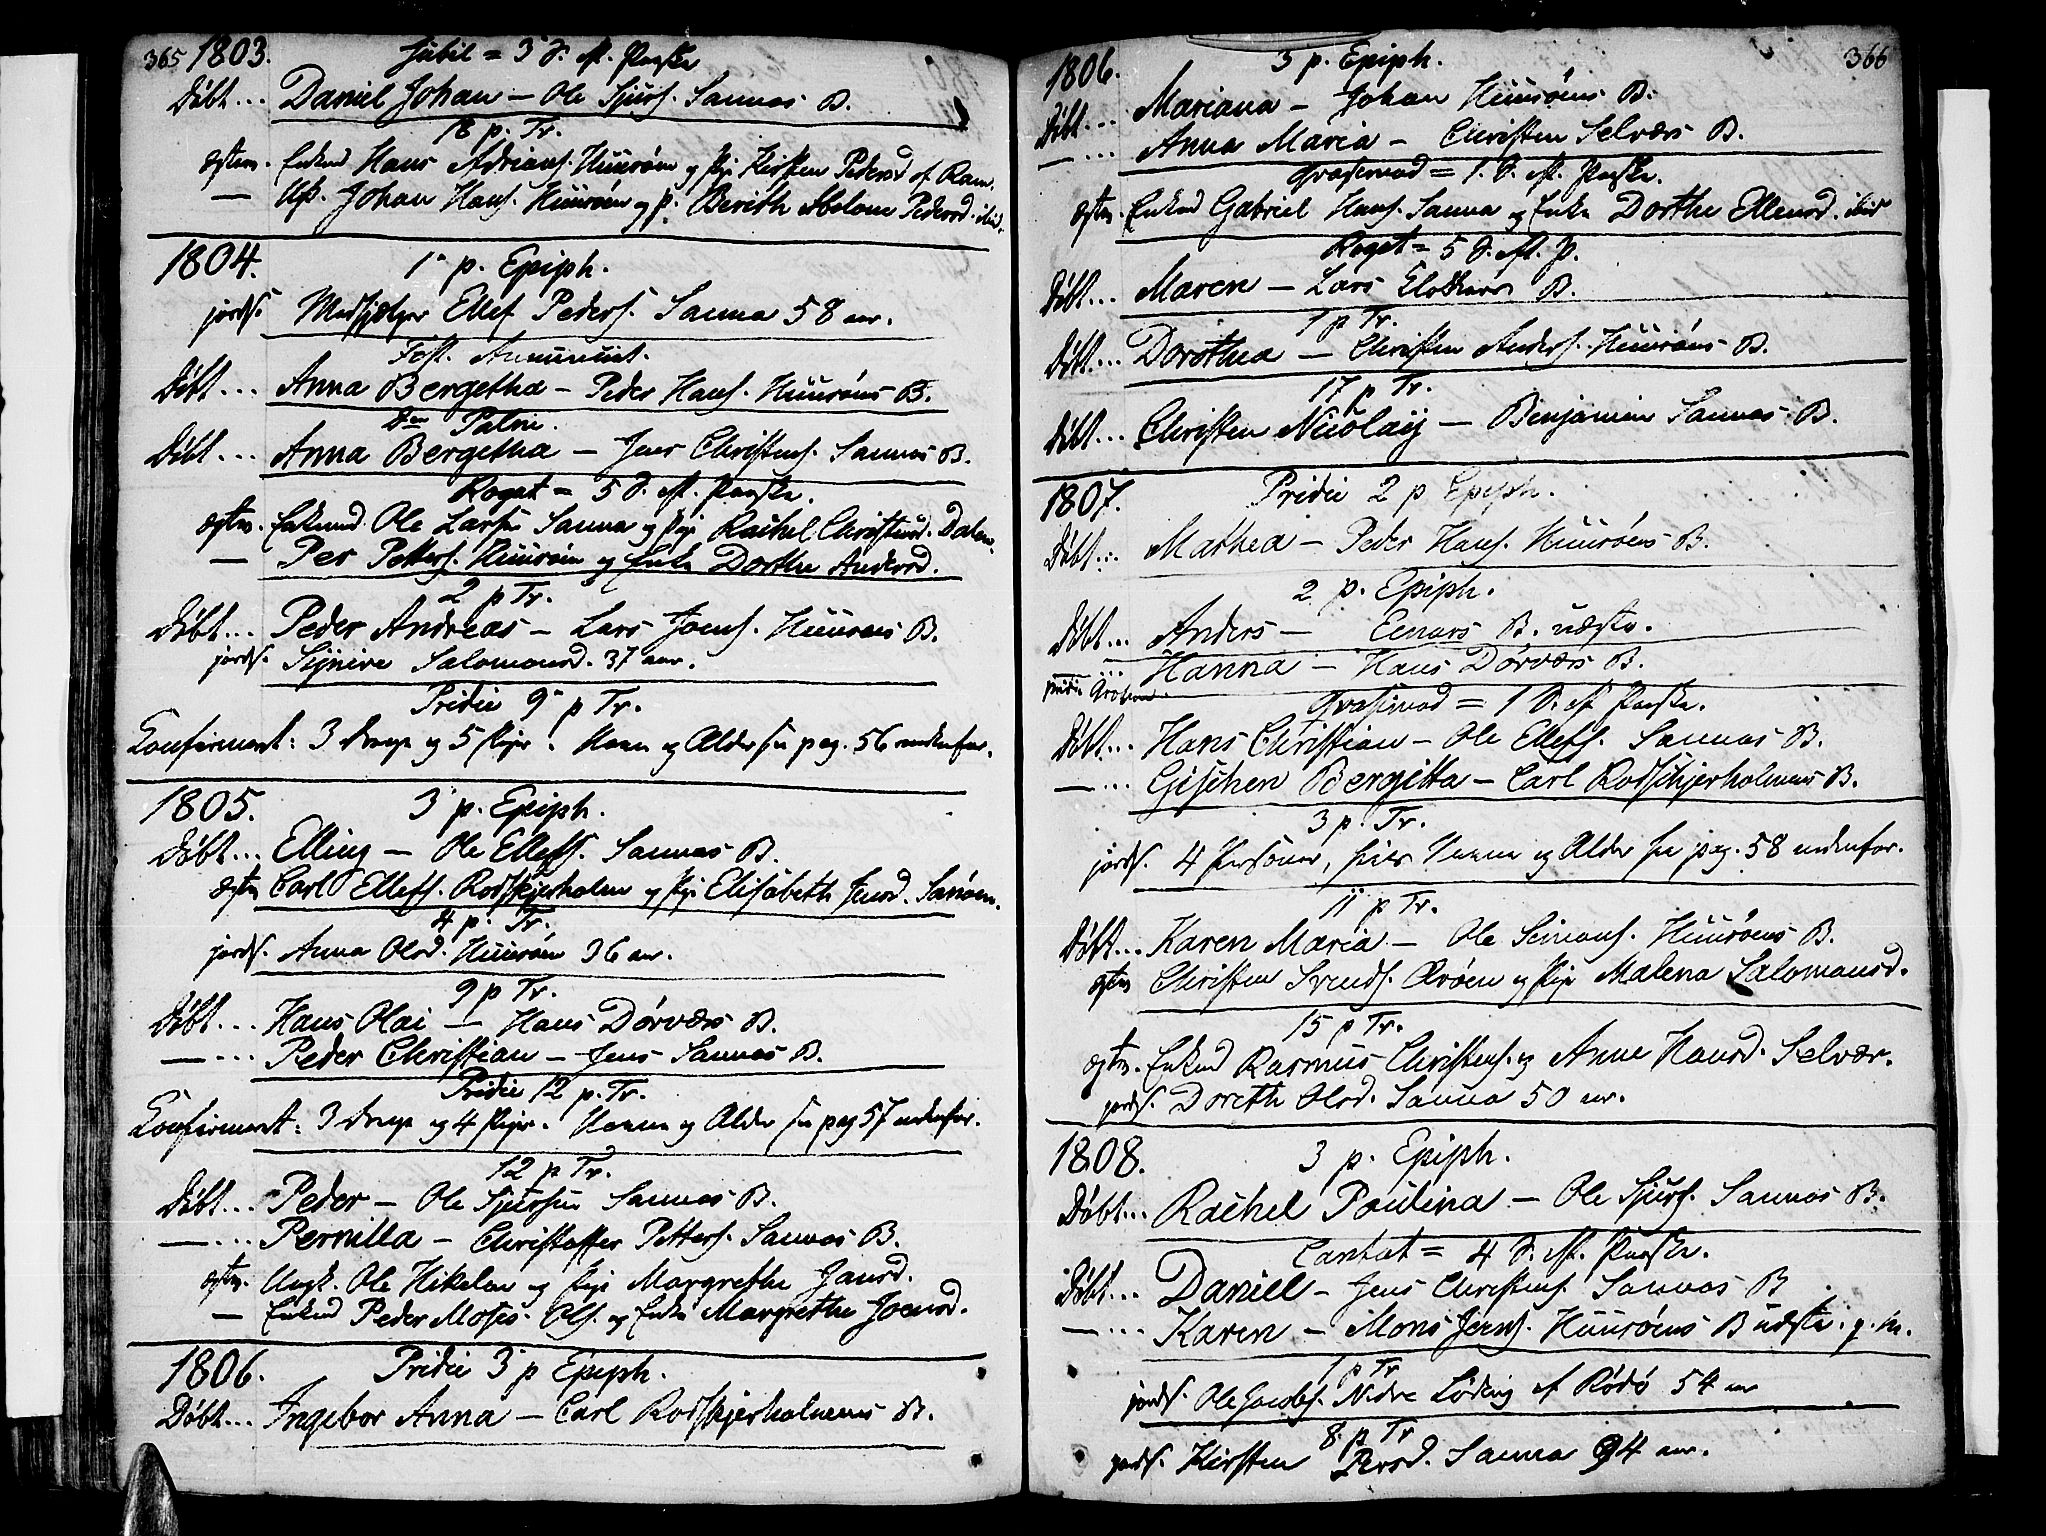 365 1803. Jubil = 3 S. eft. Paaske
Døbt... Daniel Johan – Ole Sjurs. Sannas B.
18 p. Tr.
Egtev. Enkmd Hans Adrians. Huusøen og Pige Kirsten Pedersd. af Ran.
— Johan Hans. Huusøen og P. Berith Abelone Pedersd. ibid.
1804. 1 p. Epiph.
jords. Ellef Peders. Sanna 58 aar.
Fest. Annunciat.
Døbt... Anna Bergetha – Peder Hans. Huusøens B.
Dom Palm.
Døbt... Anna Bergetha – Jens Christens. Sannas B.
Rogat = 5 S. eft. Paaske.
egtev. Enkmd. Ole Larsen Sanna og Pige Rachel Christensd. Dalen.
— Per Petters. Huusøen og Enke Dorthe Andersd.
2 p Tr.
Døbt... Peder Andreas – Lars Joens. Huusøens B.
jords. Signire Salomonsd. 37 aar.
Pridie 9 p Tr.
Confirmeret: 3 Drenge og 5 Piger. Navne og Alder see pag. 56 nedenfor.
1805. 3 p. Epiph.
Døbt... Elling – Ole Ellefs. Sannas B.
Egtev Carl Ellefs. Rodskjerholm og Pige Elisabeth Jensd. Sanøen.
4 p. Tr.
jords. Anna Olsd. Huusøen 36 aar.
9 p Tr.
Døbt... Hans Olai – Hans Dørværs B.
—... Peder Christian – Jens Sannas B.
Pridie 12 p. Tr.
Confirmeret: 3 Drenge og 4 Piger. Navne og Alder see pag 57 nedenfor.
12 p Tr.
Døbt... Peder – Ole Sjursen Sannas B.
—... Pernilla – Christoffer Petters. Sannas B.
egtev. Ungk. Ole Nikolai og Pige Margrethe Jansd.
— Enkmd Peder Moses Ols. og Enke Margrethe Joensd.
1806. Pridie 3 p Epiph.
Døbt... Ingebor Anna – Carl Rodskjerholmens B.
366
1806. 3 p. Epiph.
Døbt... Mariana – Johan Huusøens B.
—... Anna Maria – Christen Selværs B.
Qvasimod = 1. S. eft. Paaske.
egtev. Enkmd Gabriel Hans. Sanna og Enke Dorthe Ellensd. ibid
Rogat = 5 S. eft. P.
Døbt... Maren – Lars B.
1 p Tr.
Døbt... Dorothea – Christen Anders. Huusøens B.
17 p Tr.
Døbt... Christen Nicolaij – Benjamin Sannas B.
1807. Pridie 2 p Epiph.
Døbt... Mathea – Peder Hans. Huusøens B.
2 p. Epiph.
Døbt... Anders – Eenars B. uægte.
... Hanna – Hans Dørværs B.
Qvasimod = 1 S. eft Paaske.
Døbt... Hans Christian – Ole Ellefs. Sannas B.
—... Gischen Bergitta – Carl Rodskjerholmens B.
3 p. Tr.
jords. 4 Personer, hvis Navne og Alder see pag. 58 nedenfor.
11 p Tr.
Døbt... Karen Maria – Ole Simons. Huusøens B.
egtev Christen Svends. og Pige Malena Salomonsd.
15 p Tr.
egtev. Enkmd Rasmus Christens. og Anne Hansd. Selvær.
jords. Doreth Olsd. Sanna 50 aar.
1808. 3 p. Epiph.
Døbt... Rachel Paulina – Ole Sjurs. Sannas B.
Cantat = 4 S. eft. Paaske.
Døbt... Daniel – Jens Christens. Sannas B
—... Karen – Mons Jens. Huusøens B uægte. g. m.
1 p Tr
jords. Ole Jacobs. Nedre Løding af Rødø 54 aar
8. p Tr
jords. Kirsten Persd. Sanna 94 aar.